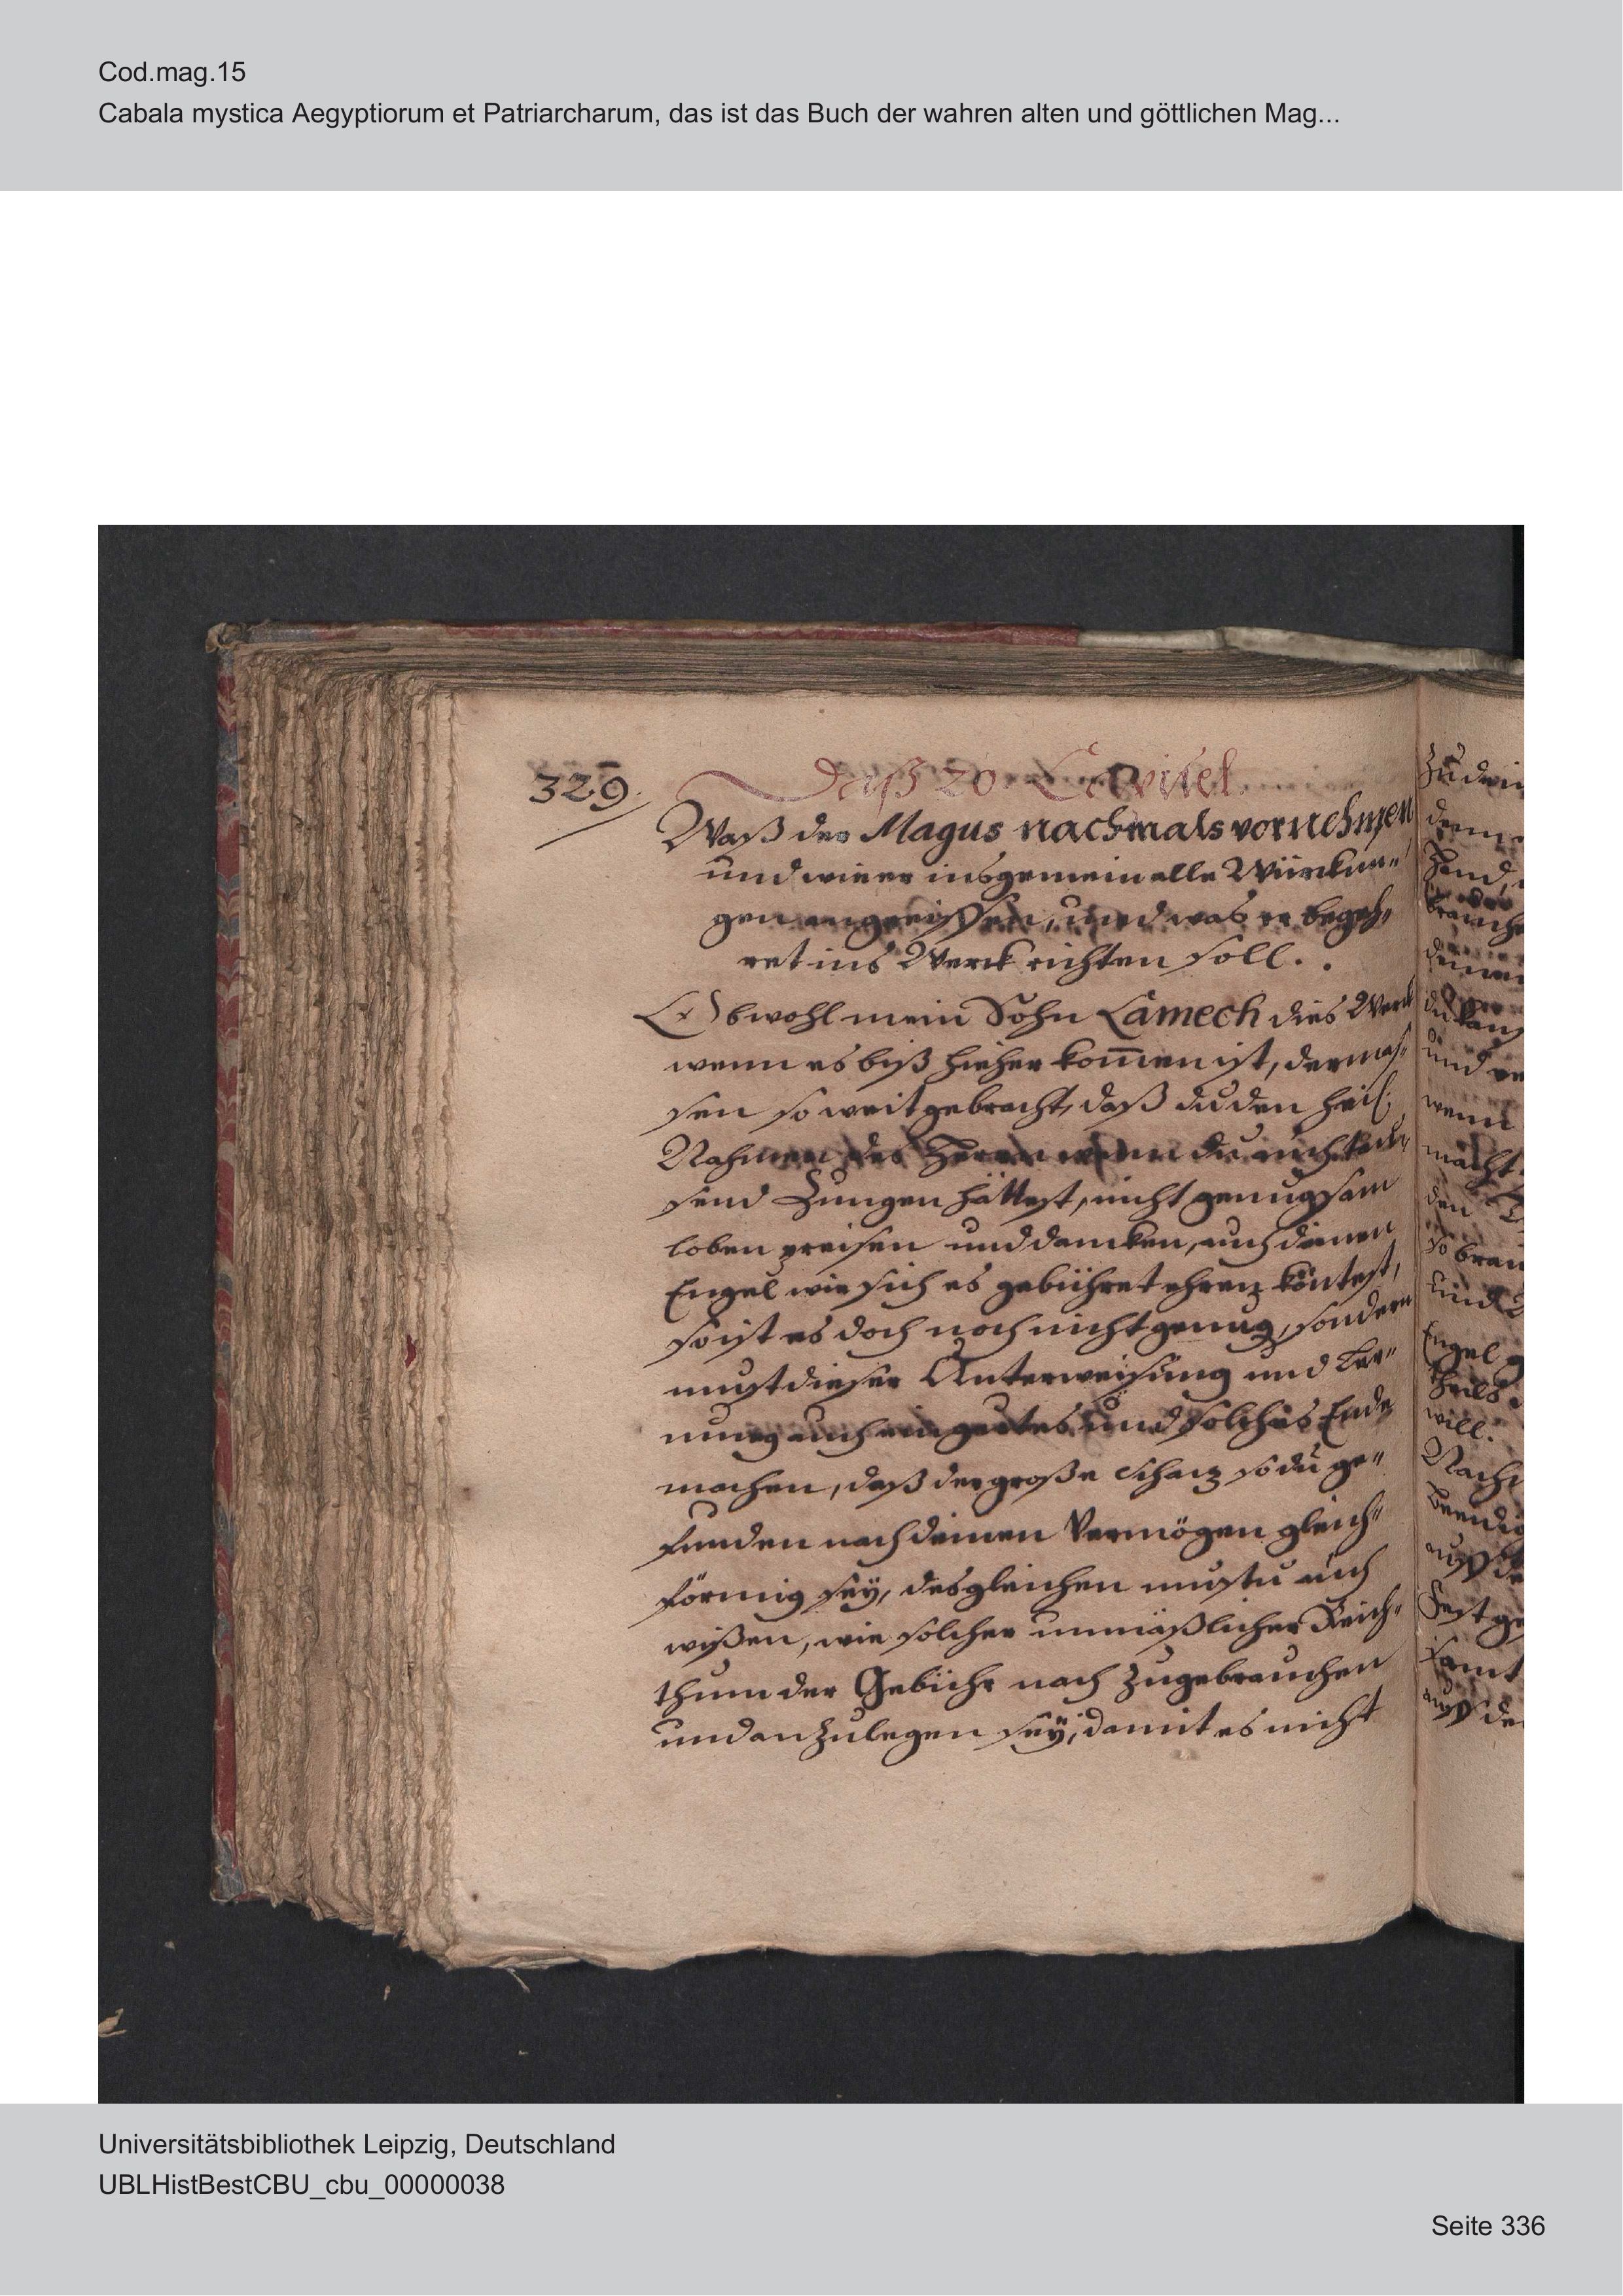 Cod.mag.15
Cabala mystica Aegyptiorum et Patriarcharum, das ist das Buch der wahren alten und göttlichen Mag...
329.
Daß 20. Capitel.
Waß der Magus nachmals vornehmen
und wie er insgemein alle Würckun„
gen angreiffen, und was er begeh„
ret ins Werck richten soll.
Obwohl mein Sohn Lamech dies Werck
wenn es biß hieher kom̄en ist, dermas„
sen so weit gebracht, daß du den heil.
Nahmen des Herrn wenn du auch tau„
send Zungen hättest, nicht genugsam
loben preisen und dancken, auch deinen
Engel wie sich es gebühret ehren köntest,
so ist es doch noch nicht genug, sondern
must dieser Unterweisung und Ler„
nung auch ein gutes und solches Ende
machen, daß der große Schatz so du ge„
funden nach deinen Vermögen gleich„
förmig seÿ, desgleichen mustu auch
wißen, wie solcher unmäßlicher Reich„
thum der Gebühr nach zugebrauchen
und anzulegen seÿ, damit es nicht
denn
Hand,
und
wenn
macht
den
so brau
und
Engel
theils
will.
Nach
Fest ge
samt
auff de
Universitätsbibliothek Leipzig, Deutschland
UBLHistBestCBU_cbu_00000038
Seite 336